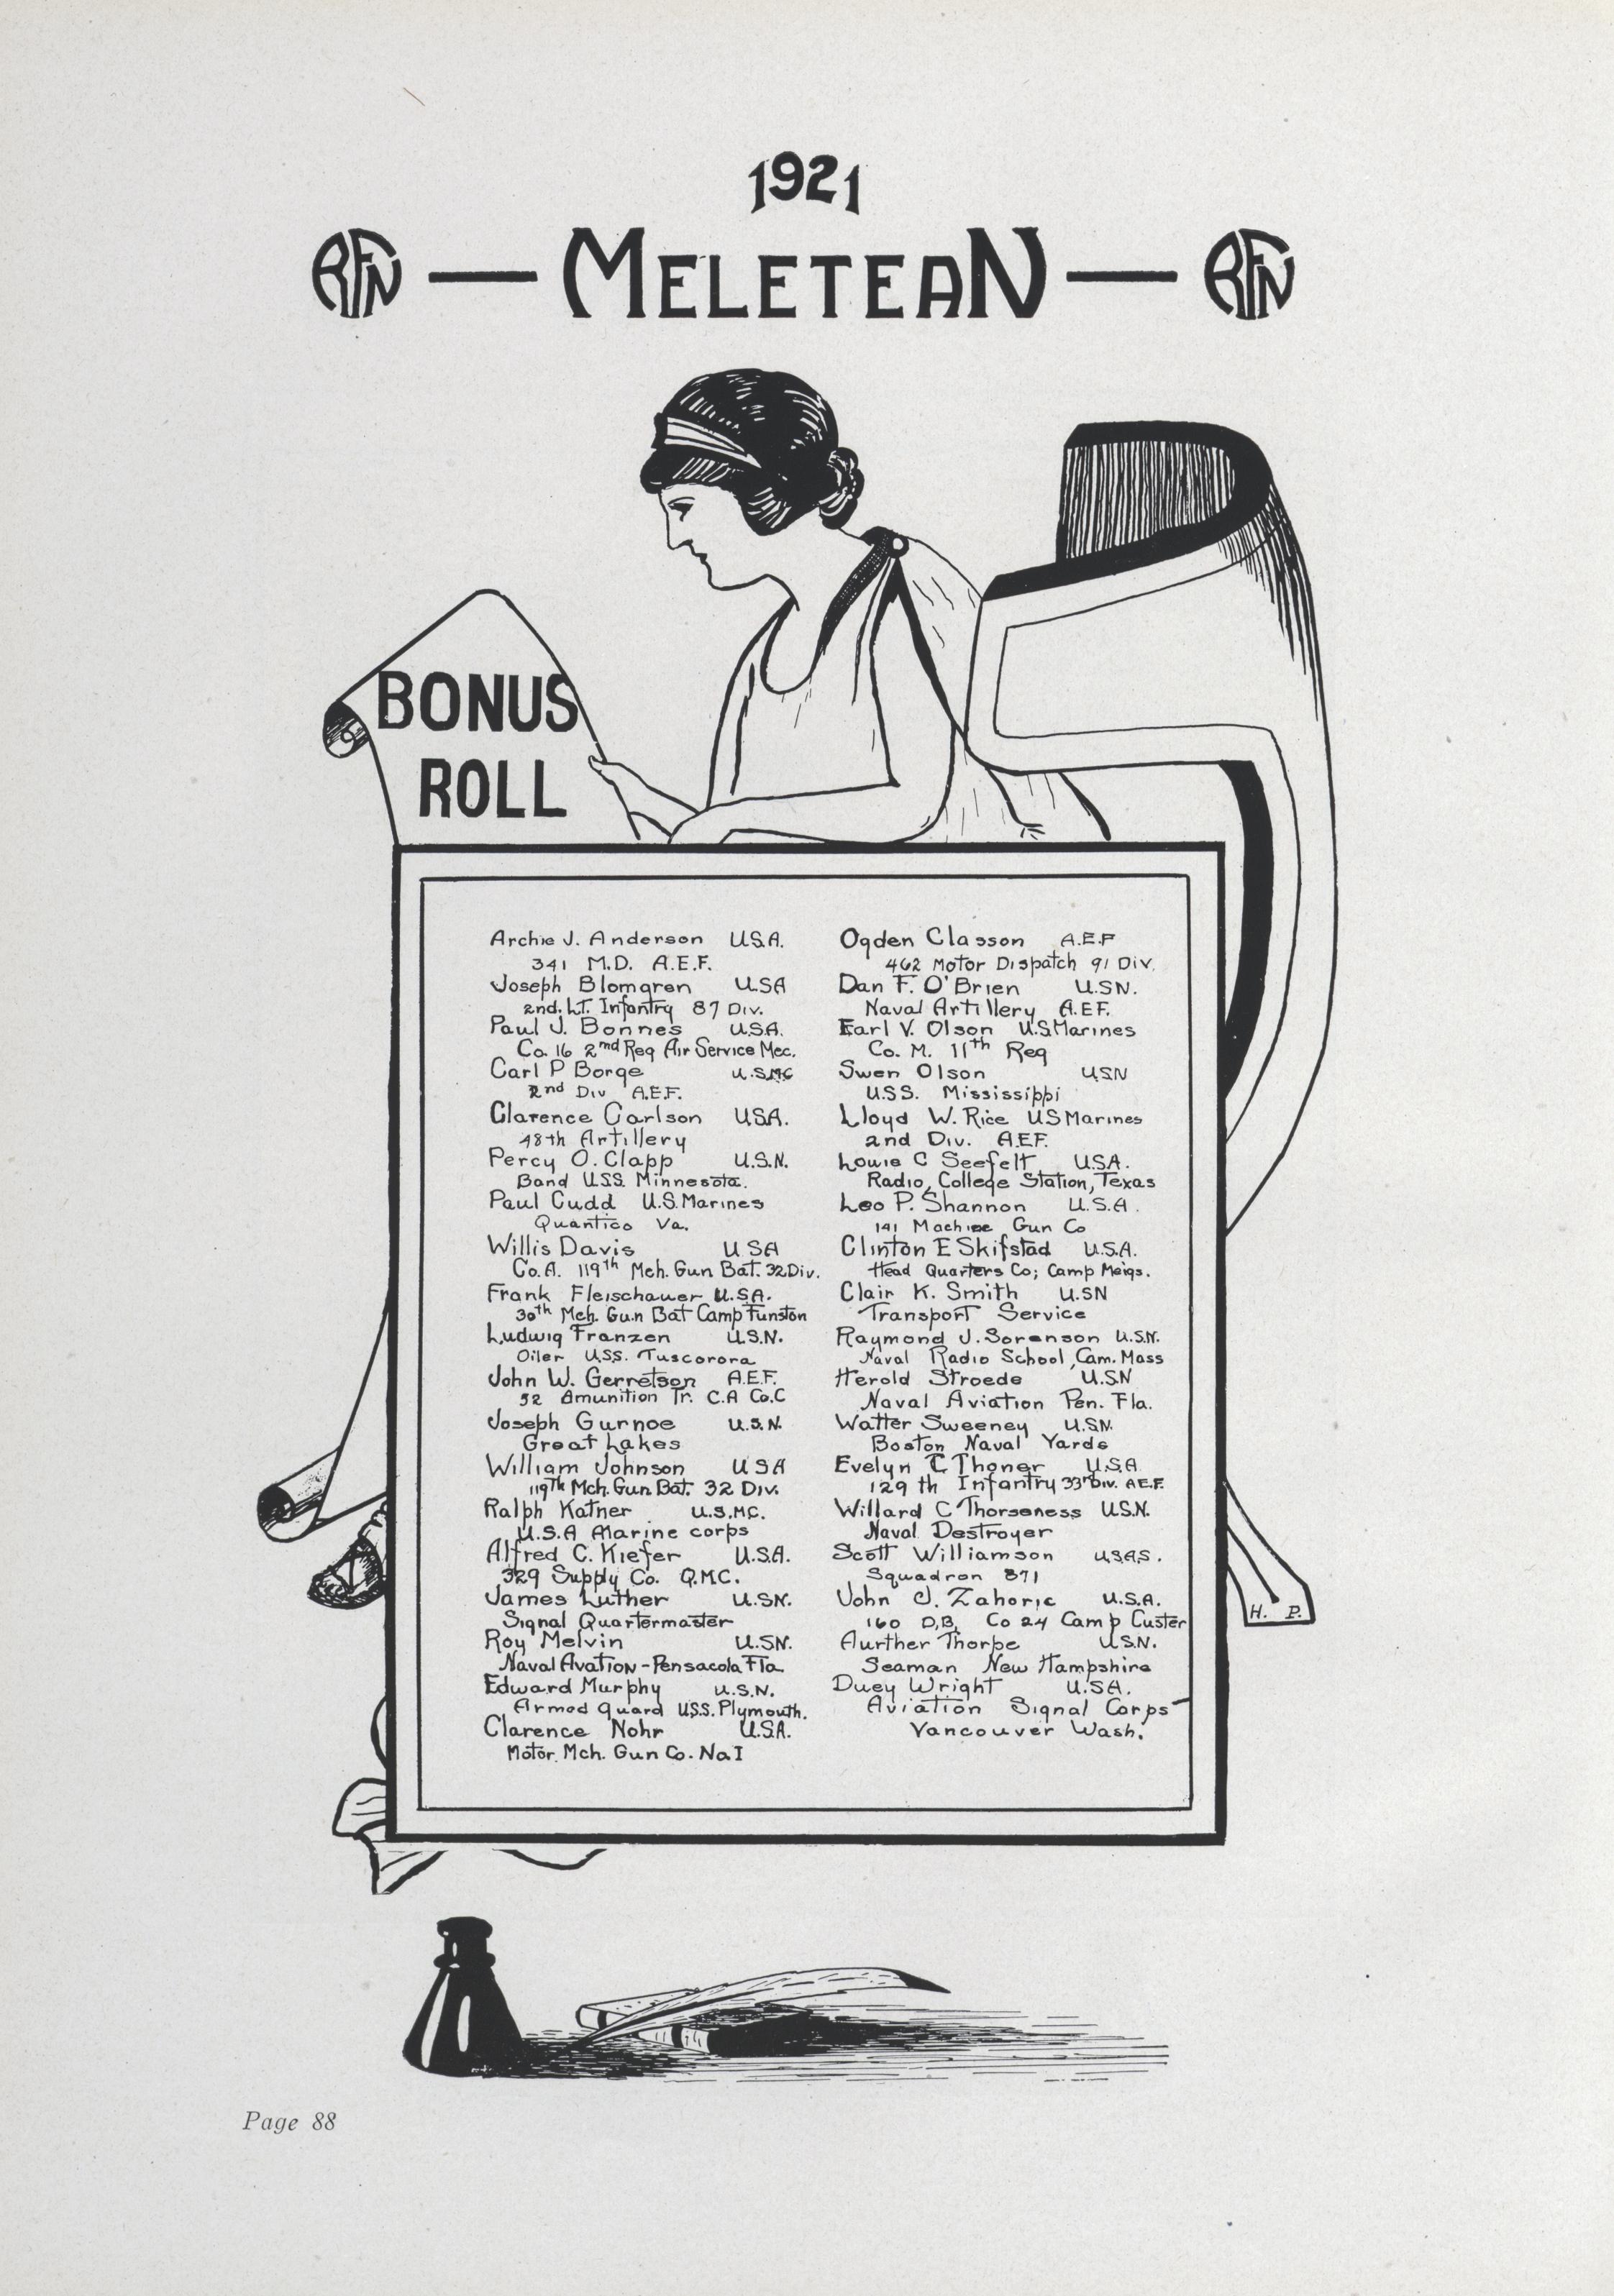 1921
RFN — MELETEAN — RFN
BONUS
ROLL
Archie J. Anderson U.S.A.
341 M.D. A.E.F.
Joseph Blomgren U.S.A
2nd. LT. Infantry 87 Div.
Paul J. Bonnes U.S.A.
Co. 16 2nd Reg Air Service Mec.
Carl P Borge U.S.MC
2nd Div A.E.F.
Clarence Carlson USA.
48th Artillery
Percy O. Clapp U.S.N.
Band U.S.S. Minnesota.
Paul Cudd U.S. Marines
Quantico Va.
Willis Davis U SA
Co. A. 119th Mch. Gun Bat. 32 Div.
Frank Fleischauer U.S.A.
30th Mch. Gun Bat Camp Funston
Ludwig Franzen U.S.N.
Oiler U.S.S. Tuscorora
John W. Gerretson A.E.F.
52 Amunition Tr. C.A Co.C
Joseph Gurnoe U.S.N.
Great Lakes
William Johnson U S A
119th Mch. Gun Bat. 32 Div.
Ralph Katner U.S.MC.
U.S.A Marine corps
Alfred C. Kiefer U.S.A.
329 Supply Co. Q.M.C.
James Luther U.SN.
Signal Quartermaster
Roy Melvin U.SN.
Naval Avation - Pensacola Fla
Edward Murphy U.S.N.
Armed guard U.S.S. Plymouth.
Clarence Nohr U.S.A.
Motor. Mch. Gun Co. No I
Ogden Classon A.E.F
462 Motor Dispatch 91 Div.
Dan F. O'Brien U.SN.
Naval Artillery A.E.F.
Earl V. Olson U.S Marines
Co. M. 11th Reg
Swen Olson USN
U.S.S. Mississippi
Lloyd W. Rice US Marines
2nd Div. A.E.F.
Louie C Seefelt U.S.A.
Radio, College Station, Texas
Leo P. Shannon U.S.A.
141 Machine Gun Co
Clinton E Skifstad U.S.A.
Head Quarters Co; Camp Meigs.
Clair K. Smith U.SN
Transport Service
Raymond J. Sorenson U.S.N.
Naval Radio School, Cam. Mass
Herold Stroede U.SN
Naval Aviation Pen. Fla.
Walter Sweeney U.SN.
Boston Naval Yards
Evelyn C Thoner U.S.A
129 th Infantry 33rd Div. A.E.F.
Willard C Thorseness U.S.N.
Naval Destroyer
Scott Williamson U.S.A.S.
Squadron 871
John J. Zahoric U.S.A.
160 D.B. Co 24 Camp Custer
Aurther Thorpe U.S.N.
Seaman New Hampshire
Duey Wright U.SA.
Aviation Signal Corps
Vancouver Wash.
H. P.
Page 88